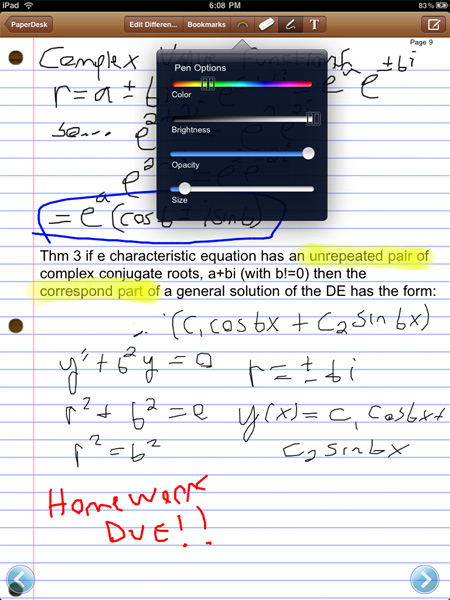 iPad 6:08 PM 83%
PaperDesk Edit Differen... Bookmarks T
Page 9
Complex
± bi
r = a ±
e
Pen Options
Color
Brightness
Opacity
Size
= e^a (cos b + i sin b)
Thm 3 if e characteristic equation has an unrepeated pair of
complex conjugate roots, a+bi (with b!=0) then the
correspond part of a general solution of the DE has the form:
(C₁ cos bx + C₂ sin bx)
y'' + b²y = 0 r = ± bi
r² + b² = 0 y(x) = C₁ cos bx +
r² = b² C₂ sin bx
Homework
DUE!!